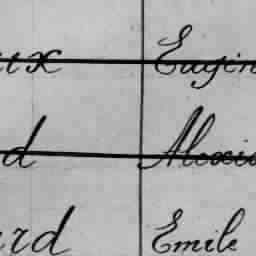 ux Eugèn
d Alexis
ard Emile